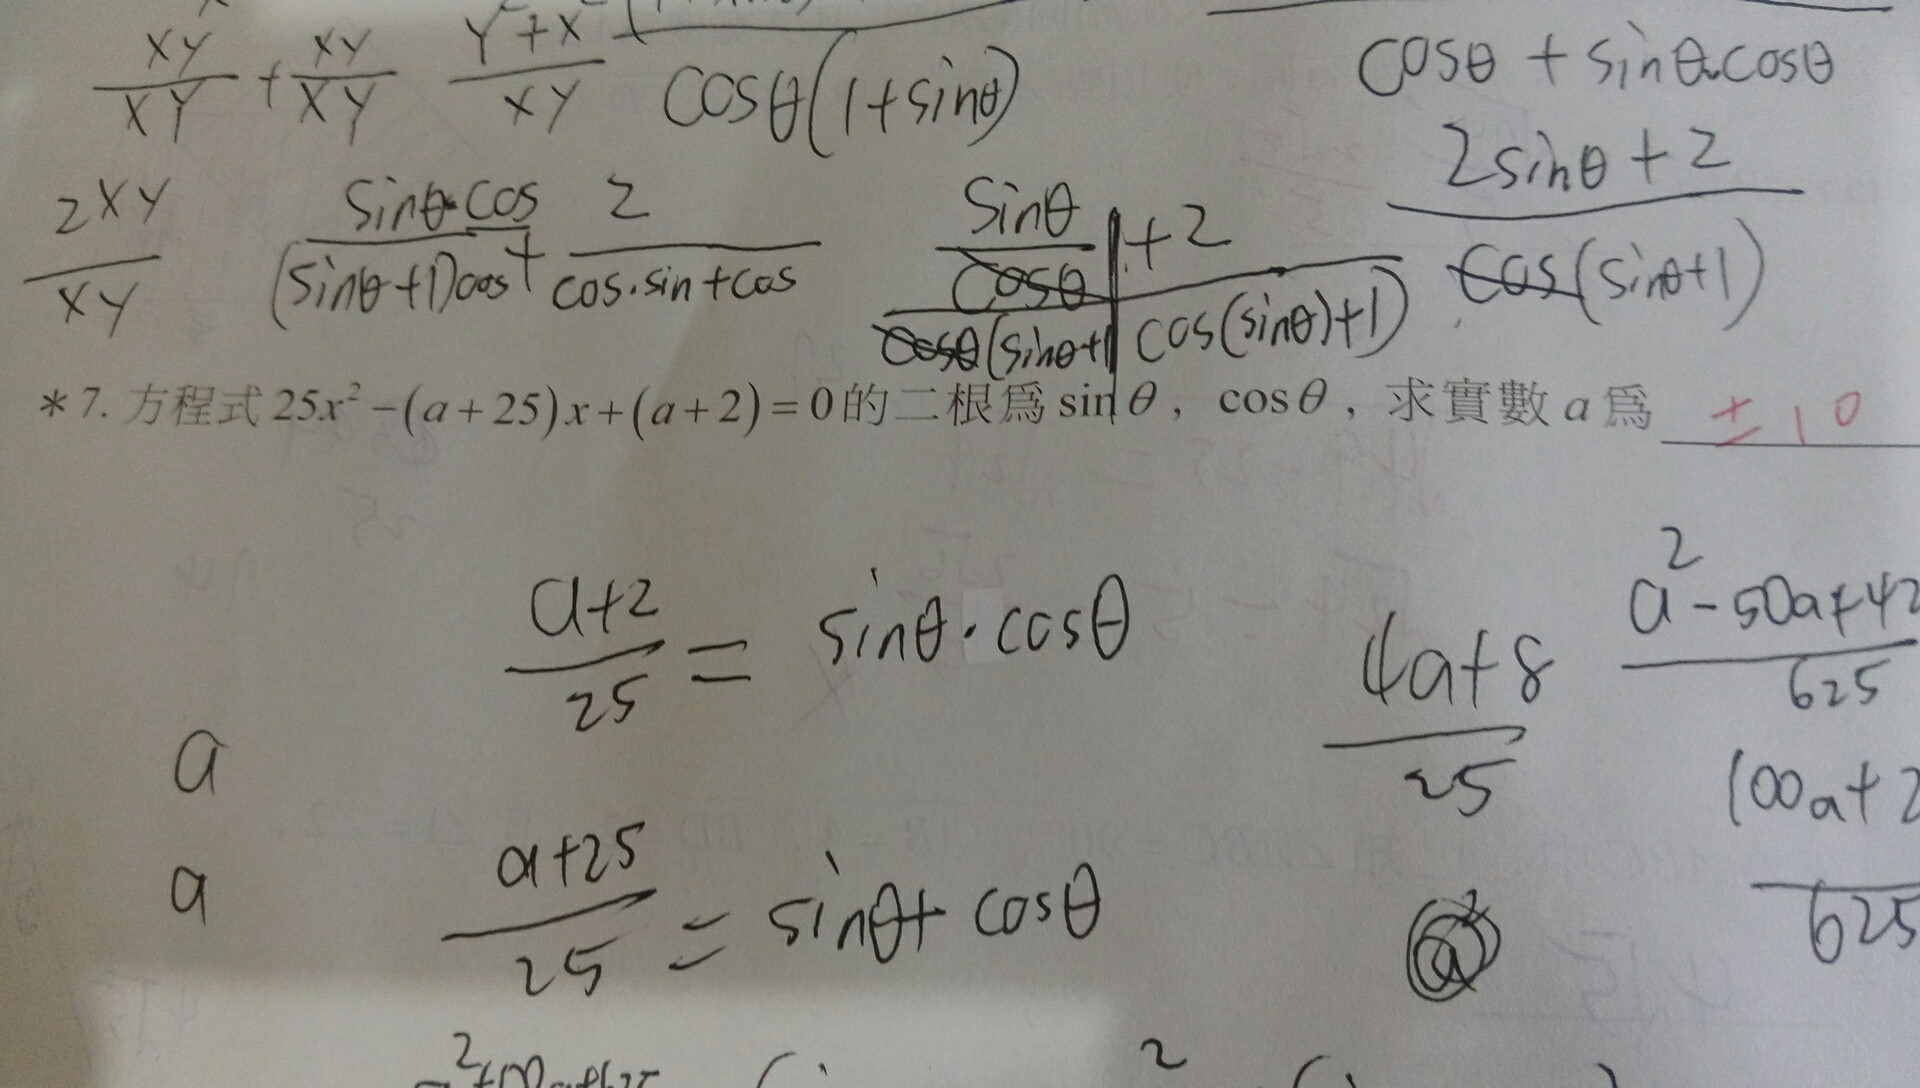 XY/XY + XY/XY
Y²+X²/XY
cosθ(1+sinθ)
cosθ + sinθ·cosθ
2XY/XY
sinθ·cos/(sinθ+1)cos + 2/cos·sin+cos
sinθ/cosθ +2
cosθ(sinθ+1 cos(sinθ)+1)
2sinθ+2/cos(sinθ+1)
*7. 方程式 25x²−(a+25)x+(a+2)=0 的二根為 sinθ，cosθ，求實數 a 為 ±10
a+2/25 = sinθ·cosθ
4a+8/25
a²-50a+42/625
a
100a+2/625
a
a+25/25 = sinθ+cosθ